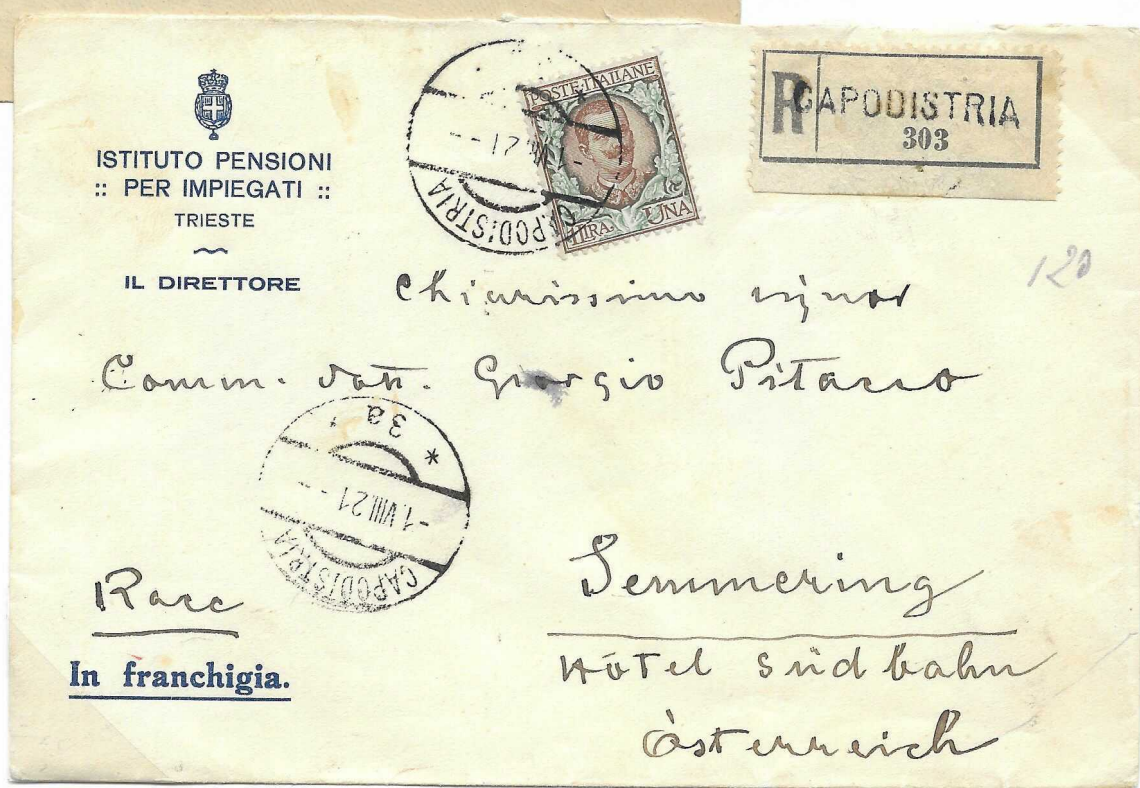 ISTITUTO PENSIONI
:: PER IMPIEGATI ::
TRIESTE
IL DIRETTORE
POSTE·ITALIANE
LIRA. UNA
CAPODISTRIA
VIII.21
R CAPODISTRIA
303
120
Chiarissimo signor
Comm. dott. Giorgio Pitacco
* 3a
-1.VIII.21
CAPODISTRIA
Racc
In franchigia.
Semmering
Hôtel Südbahn
Österreich